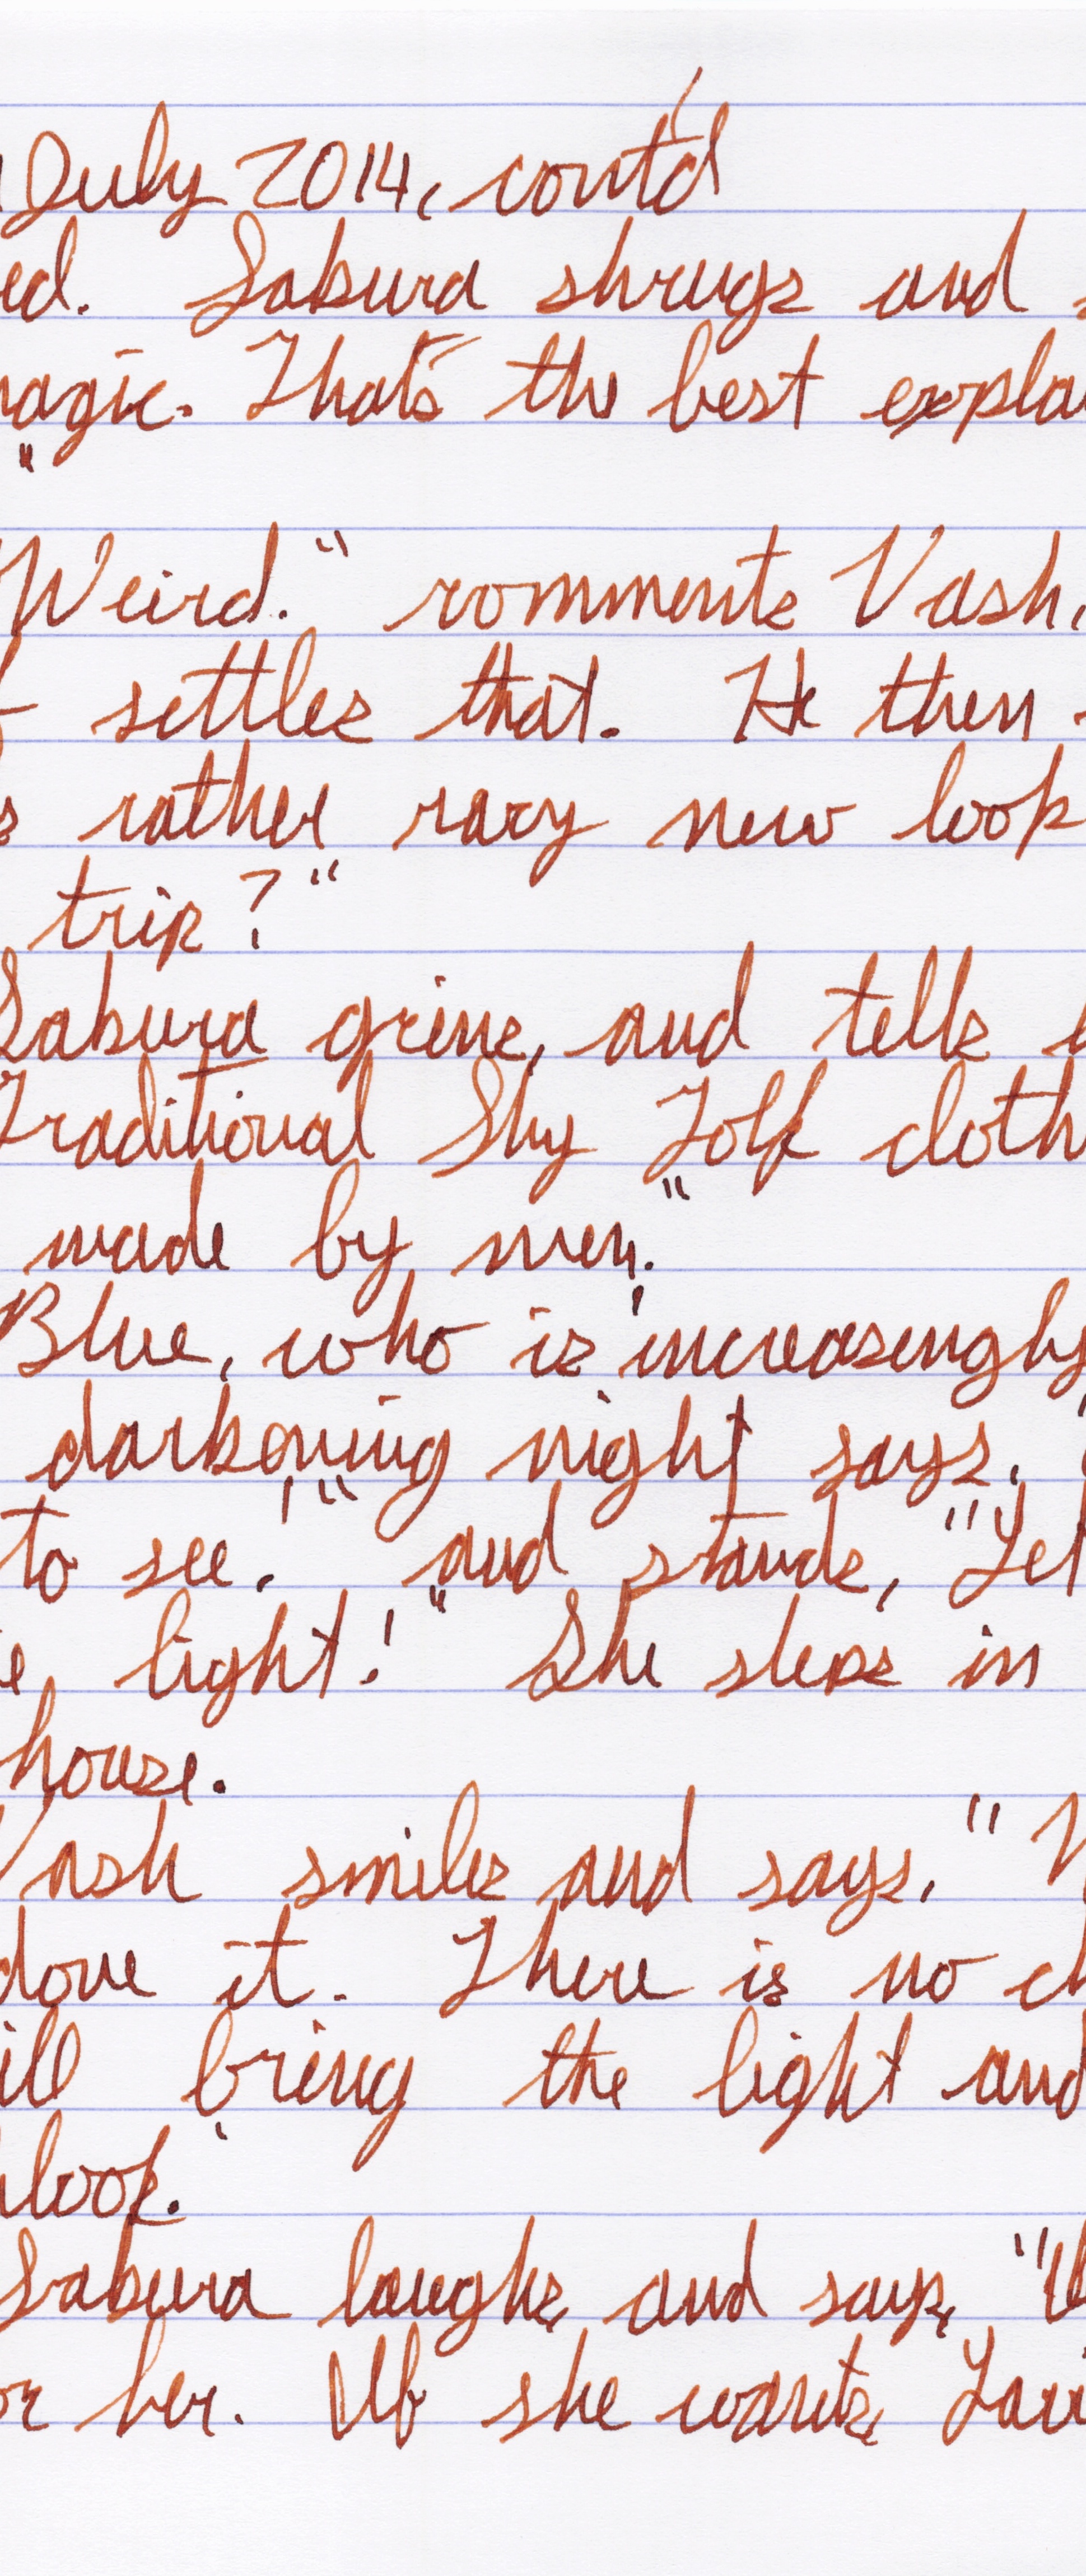 July 2014, cont'd
ed. Sakura shrugs and s
magic. That's the best expla
"
Weird." comments Vash,
f settles that. He then
s rather racy new look
trip?"
Sakura grins, and tells
Traditional Sky Folk cloth
made by men."
Blue, who is increasingly
darkening night says,
to see!" and stands, "Let
e light!" She steps in
house.
Vash smiles and says, "
love it. There is no ch
ill bring the light and
look.
Sakura laughs and says, "
or her. If she wants